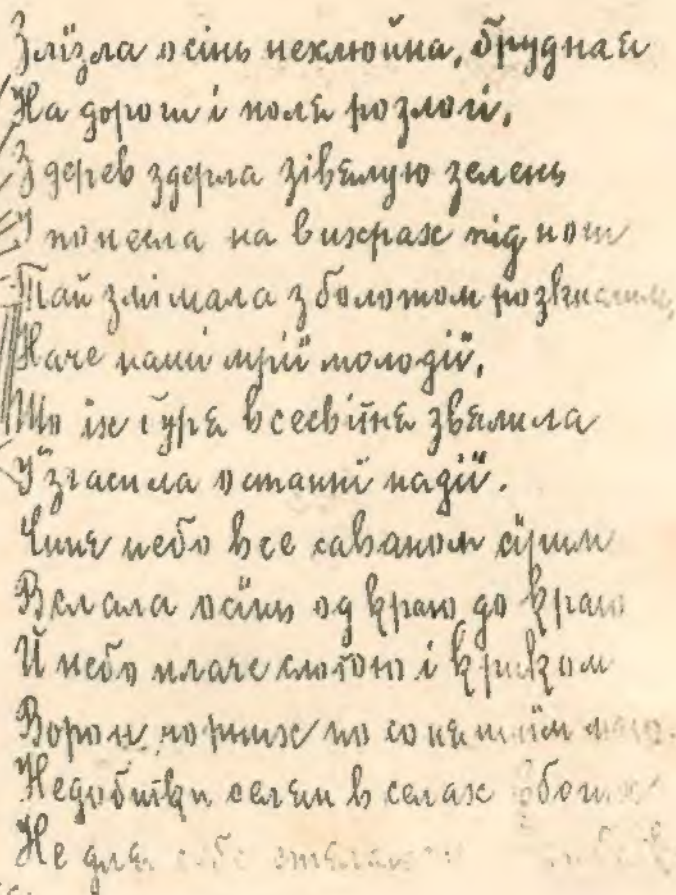 Злїзла осїнь нехлюйна, брудная
На дороги і поля розлогі,
З дерев здерла зівялую зелень
І понесла на вихрах під ноги
Тай злїмала з болотом розкислим,
Наче наші мрії молодії,
Що їх буря всесвітня звялила
Й згасила останнї надії.
Синє небо все саваном сїрим
Вслала осїнь од краю до краю
Й небо плаче слотою і криком
Ворон чорних по
Недобитки селян в селах вбогих
Не для